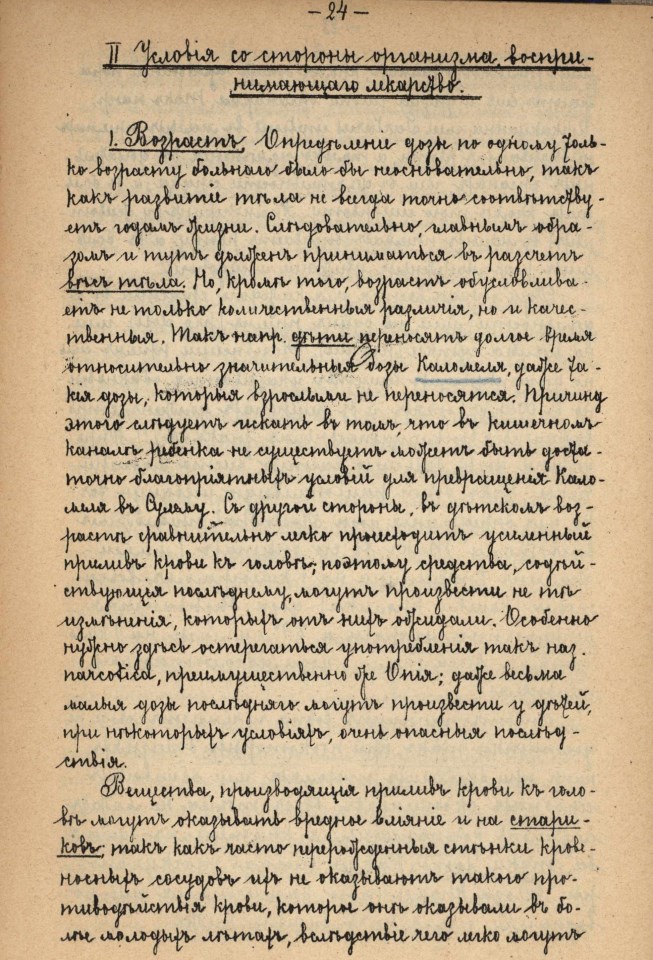 — 24 —
II Условія со стороны организма, воспри-
нимающаго лекарство.
1. Возрастъ. Опредѣленіе дозы по одному толь-
ко возрасту больнаго было бы неосновательно, такъ
какъ развитіе тѣла не всегда точно соотвѣтству-
етъ годамъ жизни. Слѣдовательно, главнымъ обра-
зомъ и тутъ долженъ приниматься въ разсчетъ
вѣсъ тѣла. Но, кромѣ того, возрастъ обусловлива-
етъ не только количественныя различія, но и качес-
твенныя. Такъ напр. дѣти переносятъ долгое время
относительно значительныя дозы Каломеля, даже та-
кія дозы, которыя взрослыми не переносятся. Причину
этого слѣдуетъ искать въ томъ, что въ кишечномъ
каналѣ ребенка не существуетъ можетъ быть доста-
точно благопріятныхъ условій для превращенія Кало-
меля въ Сулему. Съ другой стороны, въ дѣтскомъ воз-
растѣ сравнительно легко происходитъ усиленный
приливъ крови къ головѣ; поэтому средства, содѣй-
ствующія послѣднему, могутъ произвести не тѣ
измѣненія, которыхъ отъ нихъ ожидали. Особенно
нужно здѣсь остерегаться употребленія такъ наз.
narcotica, преимущественно же Опія; даже весьма
малыя дозы послѣдняго могутъ произвести у дѣтей,
при нѣкоторыхъ условіяхъ, очень опасныя послѣд-
ствія.
Вещества, производящія приливъ крови къ голо-
вѣ могутъ оказывать вредное вліяніе и на стари-
ковъ; такъ какъ часто перерожденныя стѣнки крове-
носныхъ сосудовъ ихъ не оказываютъ такого про-
тиводѣйствія крови, которое онѣ оказывали въ бо-
лѣе молодыхъ лѣтахъ, вслѣдствіе чего легко могутъ